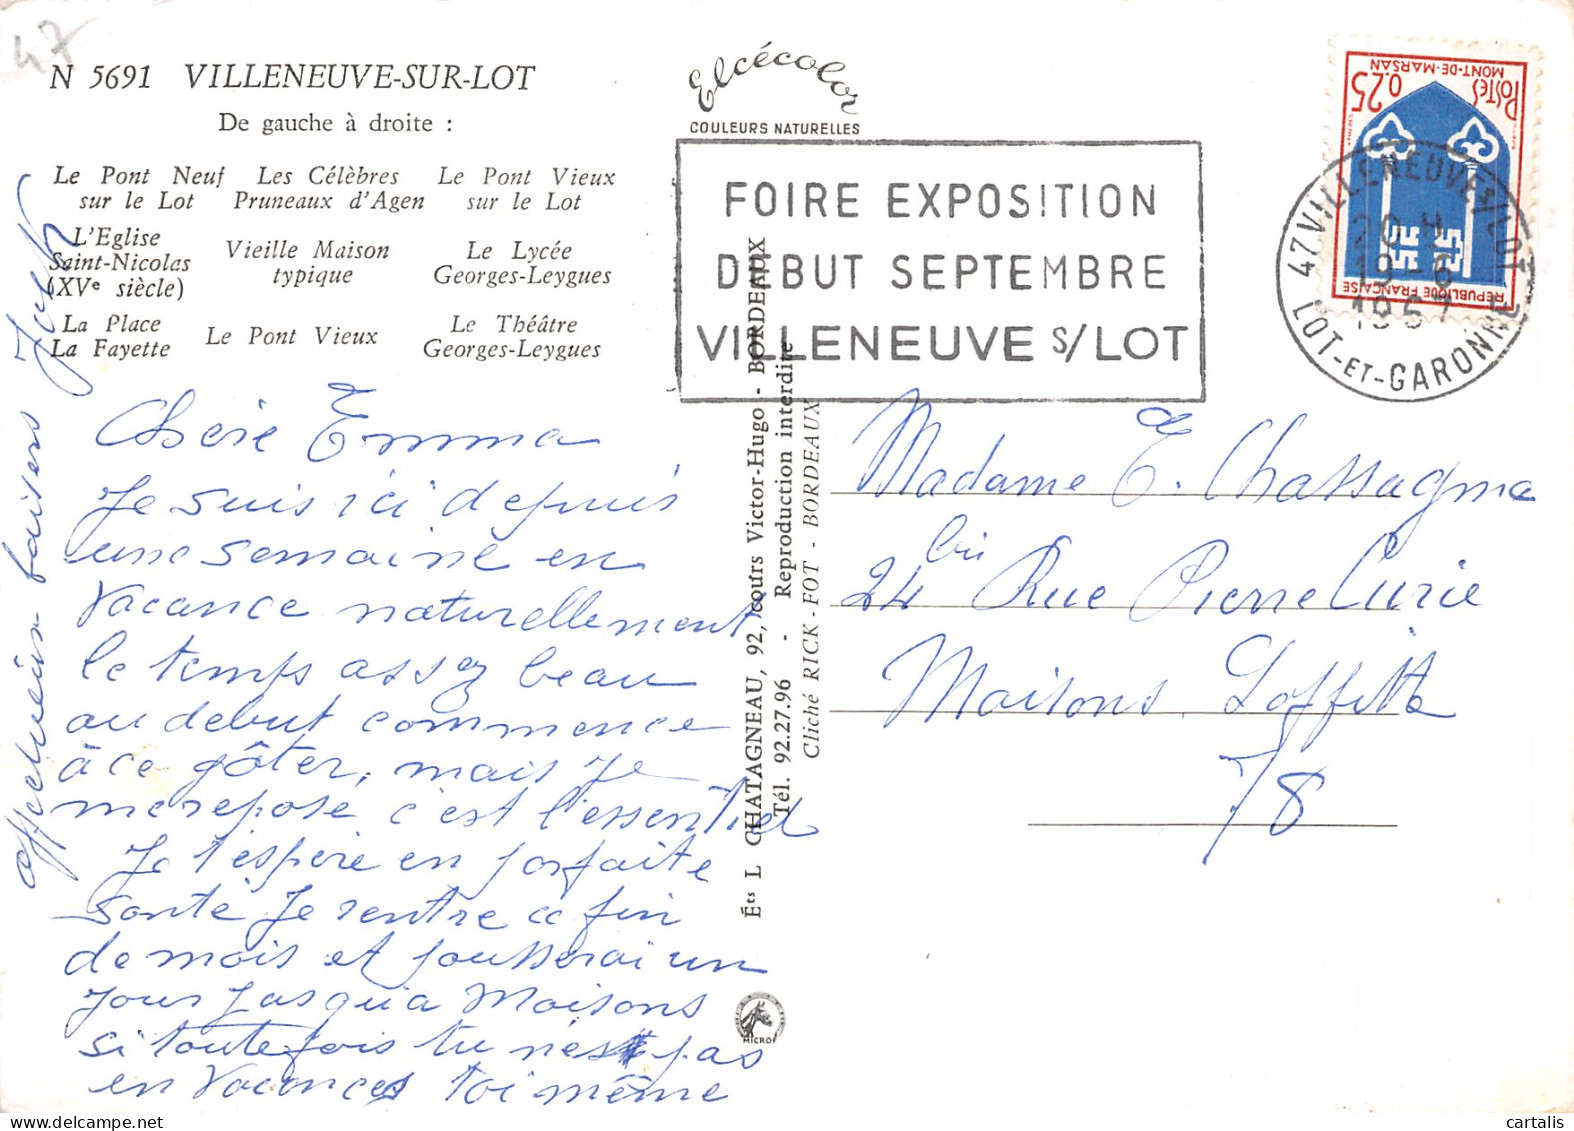 47
N 5691 VILLENEUVE-SUR-LOT
De gauche à droite :
Le Pont Neuf sur le Lot
Les Célèbres Pruneaux d'Agen
Le Pont Vieux sur le Lot
L'Eglise Saint-Nicolas (XVe siècle)
Vieille Maison typique
Le Lycée Georges-Leygues
La Place La Fayette
Le Pont Vieux
Le Théâtre Georges-Leygues
Elcécolor
COULEURS NATURELLES
FOIRE EXPOSITION
DEBUT SEPTEMBRE
VILLENEUVE S/LOT
POSTES 0.25
MONT-DE-MARSAN
REPUBLIQUE FRANÇAISE
47 VILLENEUVE S/LOT
20 H
19-6
1967
LOT-ET-GARONNE
Chère Emma
Je suis ici depuis
une semaine en
vacance naturellement
le temps assez beau
au debut commence
à ce gâter, mais je
me repose c'est l'essentiel
Je t'espère en parfaite
santé Je rentre a fin
de mois et pousserai un
jour jusqu'a Maisons
si toutefois tu n'es pas
en vacances toi même
affectueux baisers
Madame E. Chassagne
24 bis Rue Pierre Curie
Maisons Laffitte
78
Éts L CHATAGNEAU, 92, cours Victor-Hugo - BORDEAUX
Tél. 92.27.96 - Reproduction interdite
Cliché RICK-FOT - BORDEAUX
MICRO
cartalis
www.delcampe.net